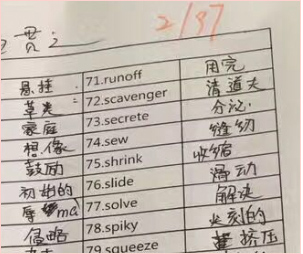 2/37
悬挂 71.runoff 用完
草类 72.scavenger 清道夫
家庭 73.secrete 分泌
想像 74.sew 缝纫
鼓励 75.shrink 收缩
初始的 76.slide 滑动
77.solve 解决
侵略 78.spiky 尖刻的
79.squeeze 挤压